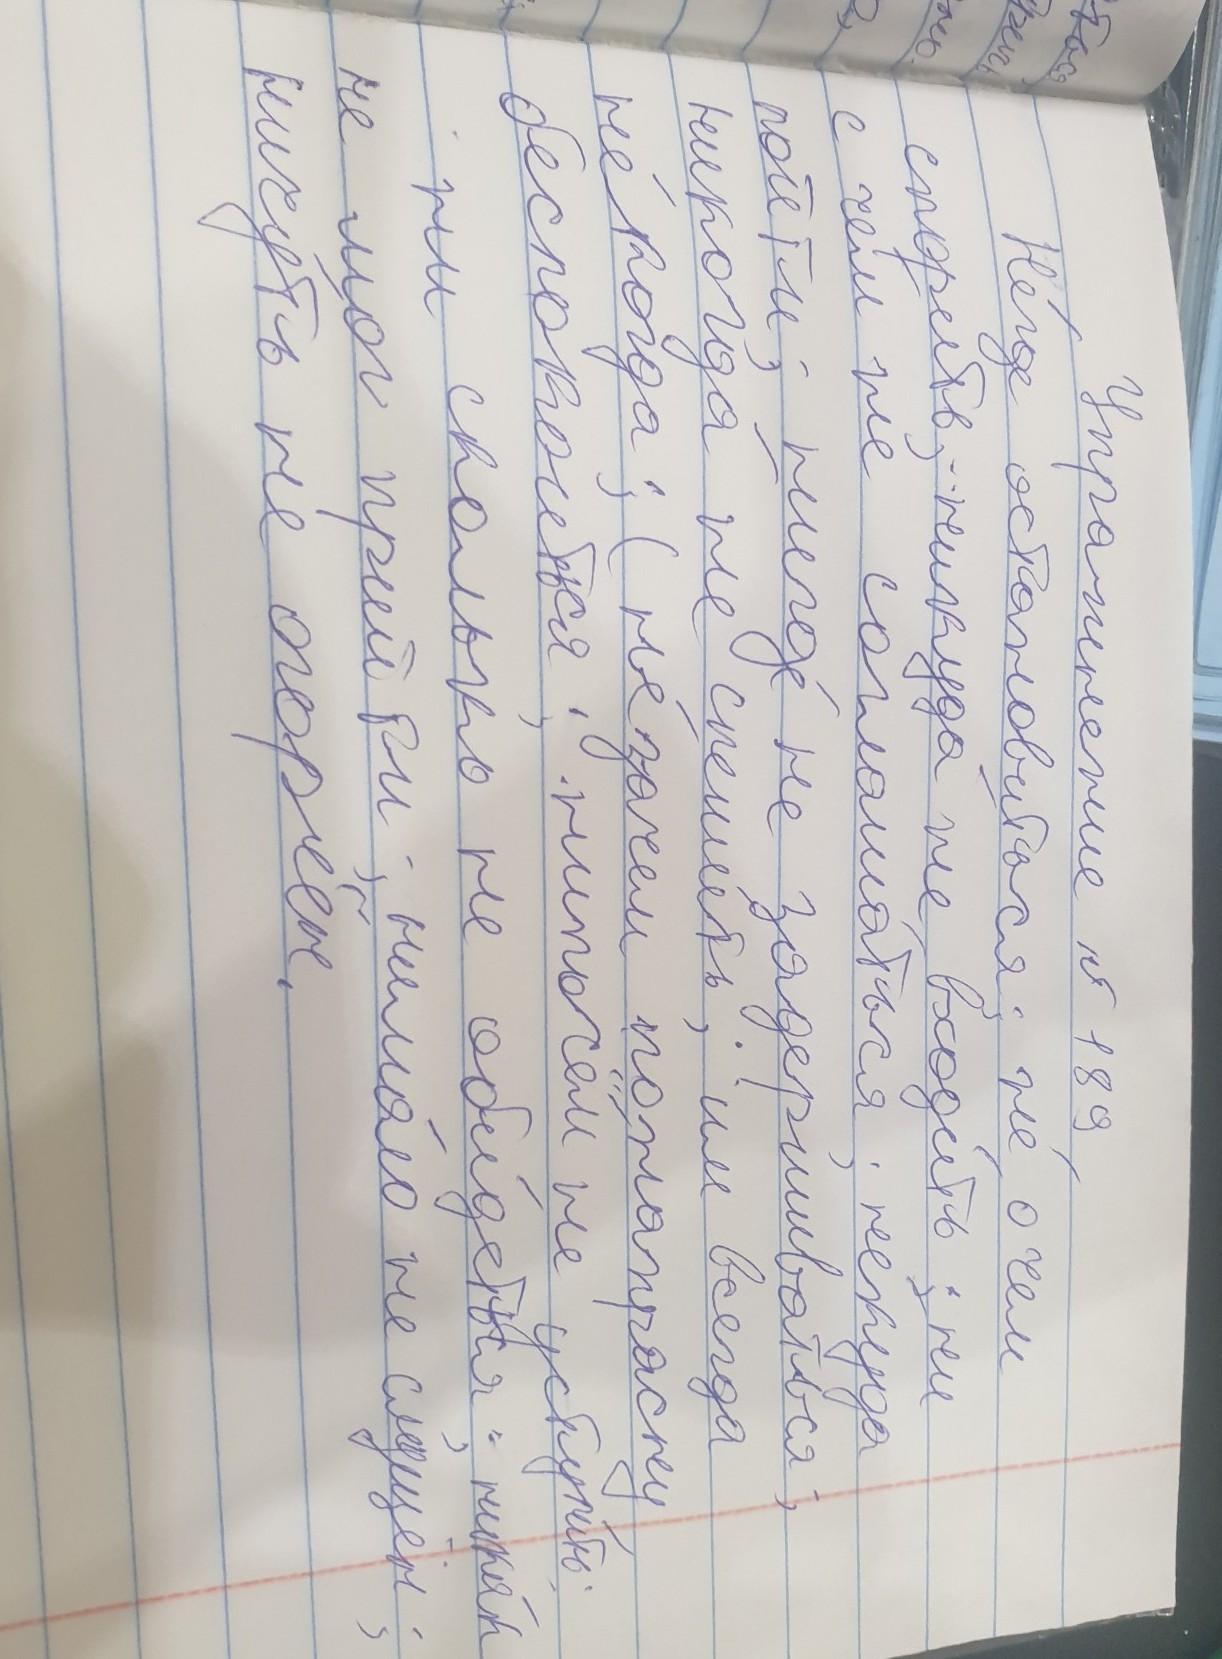 Упражнение № 189
Не́где остановиться; не́ о чем
спорить; никуда не входи́ть; ни
с чем не соглашаться; некуда
пойти; нигде́ не задерживаться;
никогда не спешить; им всегда
не́когда; (не́зачем понапрасну
беспокоиться; нипочём не уступи́ть;
ни сколько не оби́деться; ника́к
не мог прийти; нима́ло не смущён;
ничуть не огорчён.